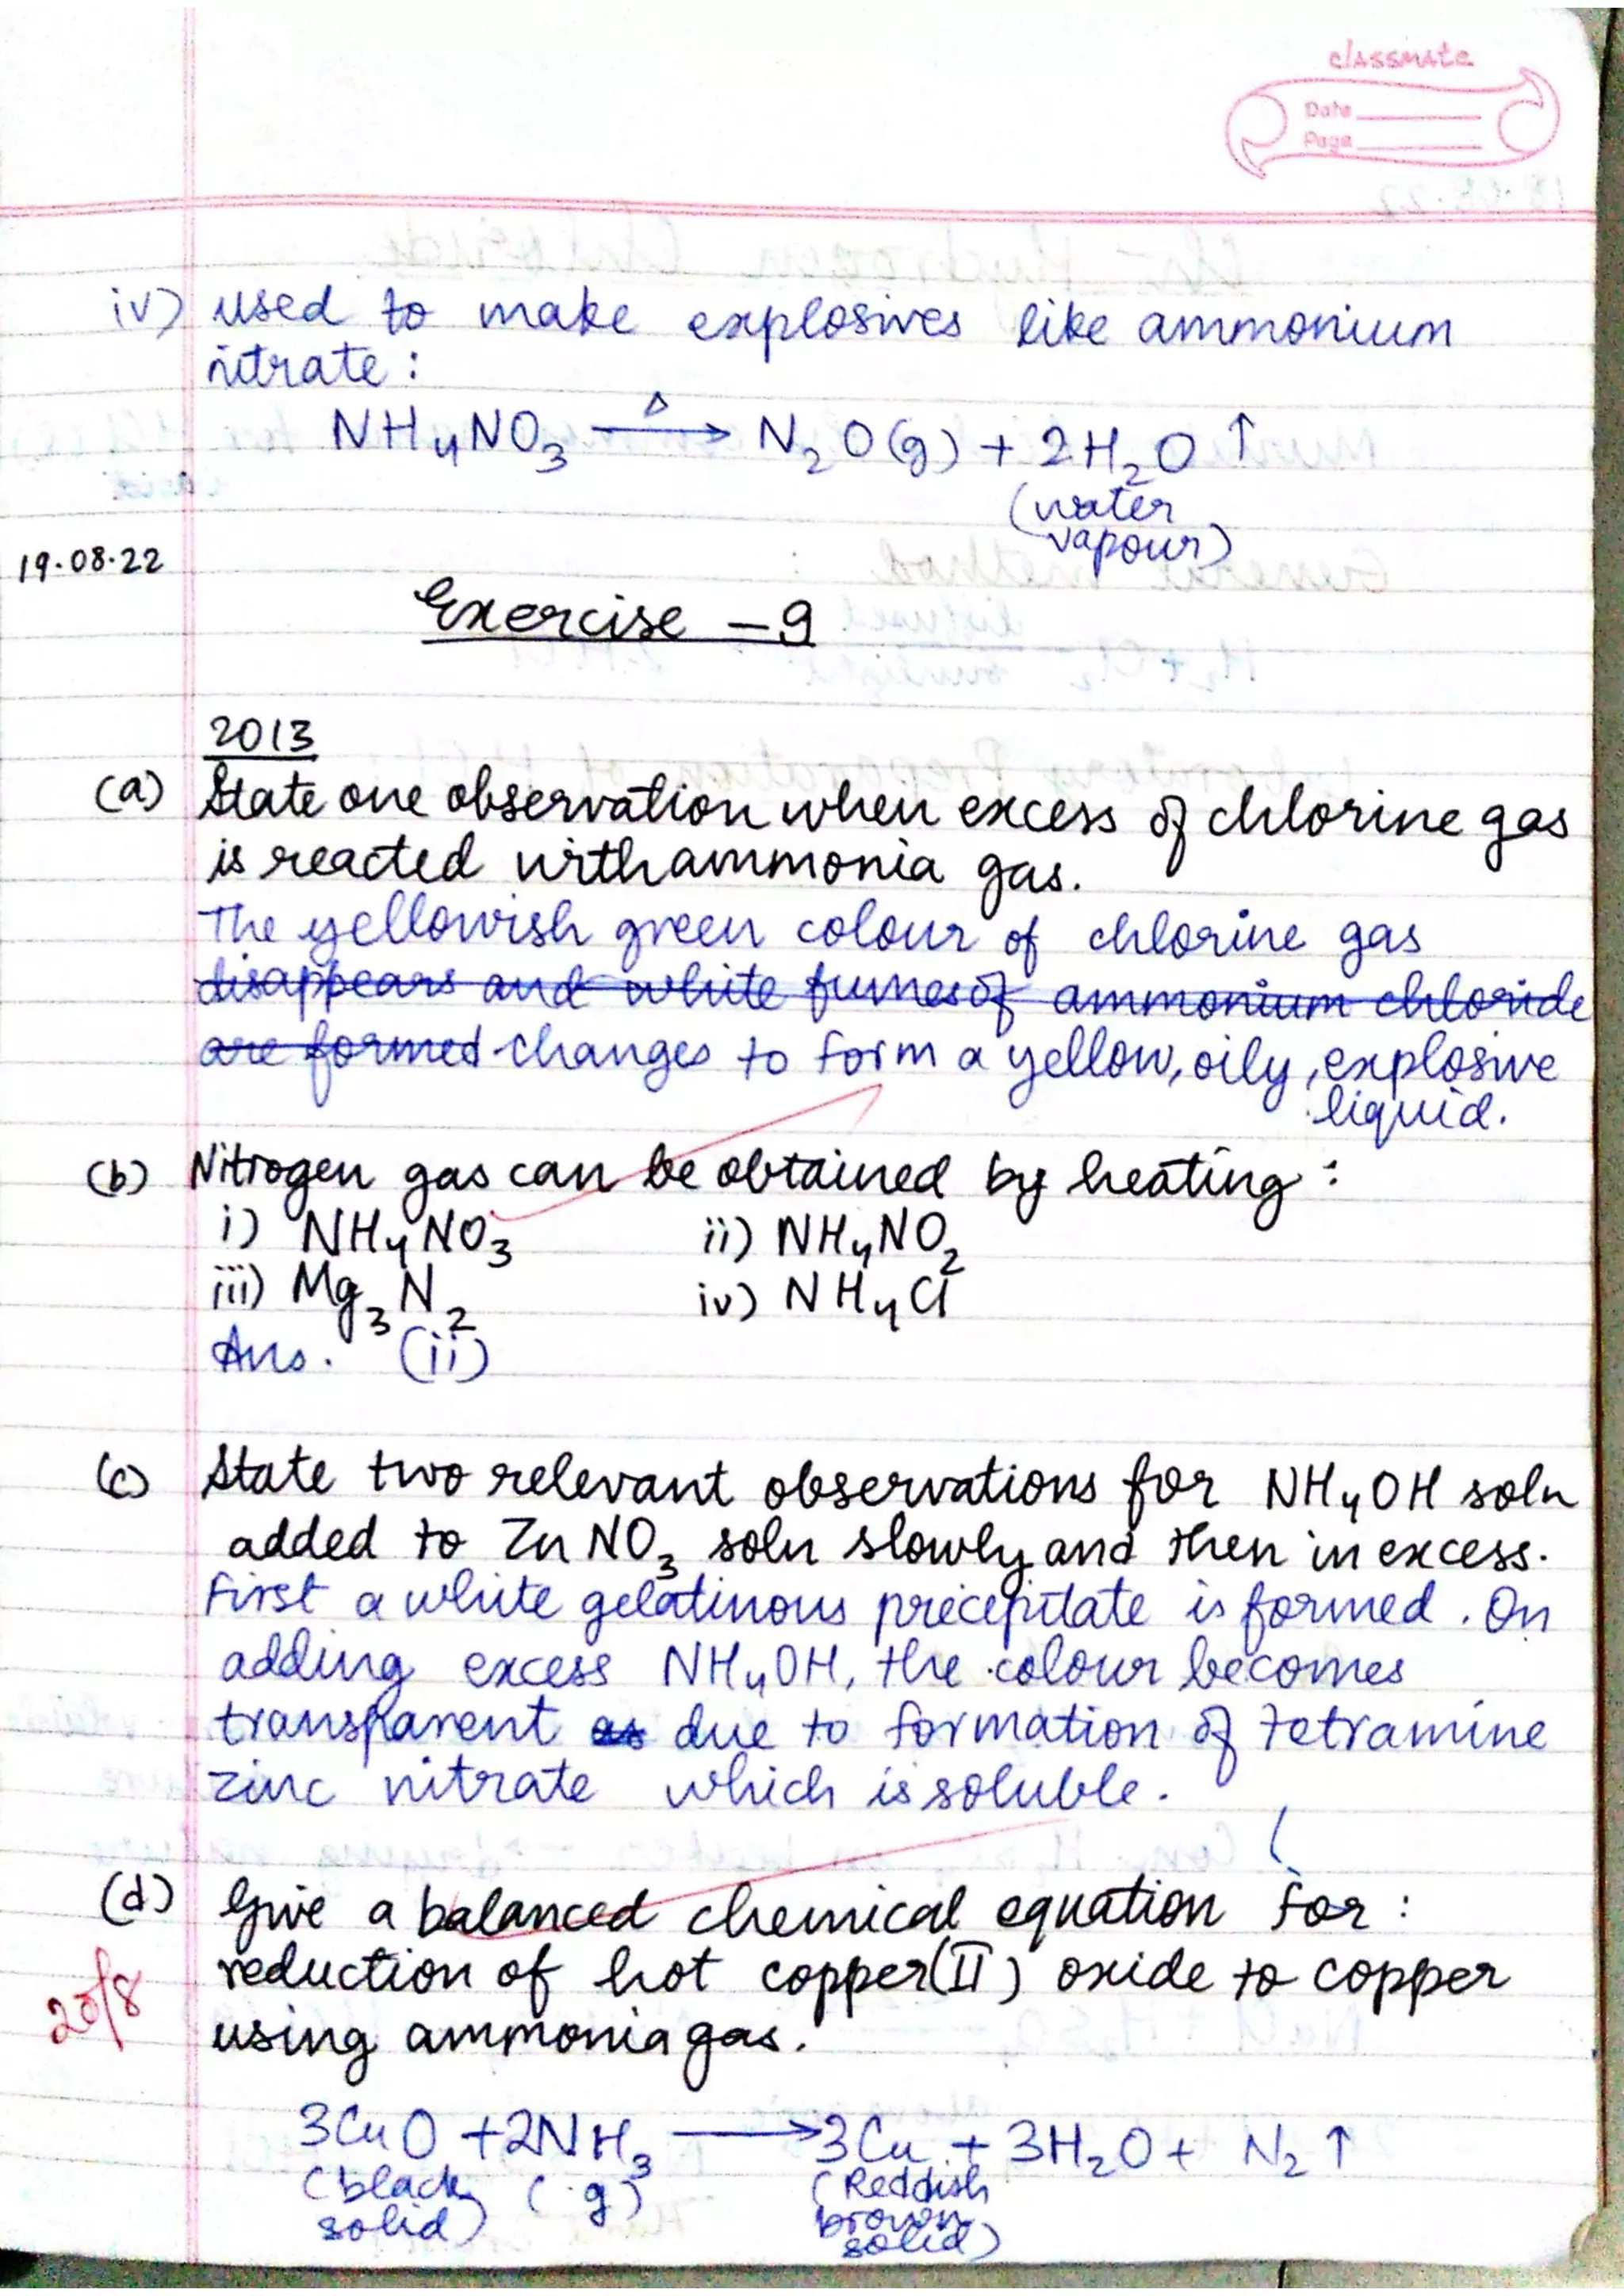 classmate
Date
Page
iv) used to make explosives like ammonium
nitrate :
NH4NO3 —Δ→ N2O(g) + 2H2O ↑
(water
vapour)
19.08.22
Exercise - 9
2013
(a) State one observation when excess of chlorine gas
is reacted with ammonia gas.
The yellowish green colour of chlorine gas
disappears and white fumes of ammonium chloride
are formed changes to form a yellow, oily, explosive
liquid.
(b) Nitrogen gas can be obtained by heating :
i) NH4NO3 ii) NH4NO2
iii) Mg3N2 iv) NH4Cl
Ans. (ii)
(c) State two relevant observations for NH4OH soln
added to ZnNO3 soln slowly and then in excess.
First a white gelatinous precepitate is formed. On
adding excess NH4OH, the colour becomes
transparent as due to formation of tetramine
zinc nitrate which is soluble.
(d) Give a balanced chemical equation for :
reduction of hot copper(II) oxide to copper
20/8
using ammonia gas.
3CuO + 2NH3 → 3Cu + 3H2O + N2 ↑
(black (g) (Reddish
solid) brown
solid)